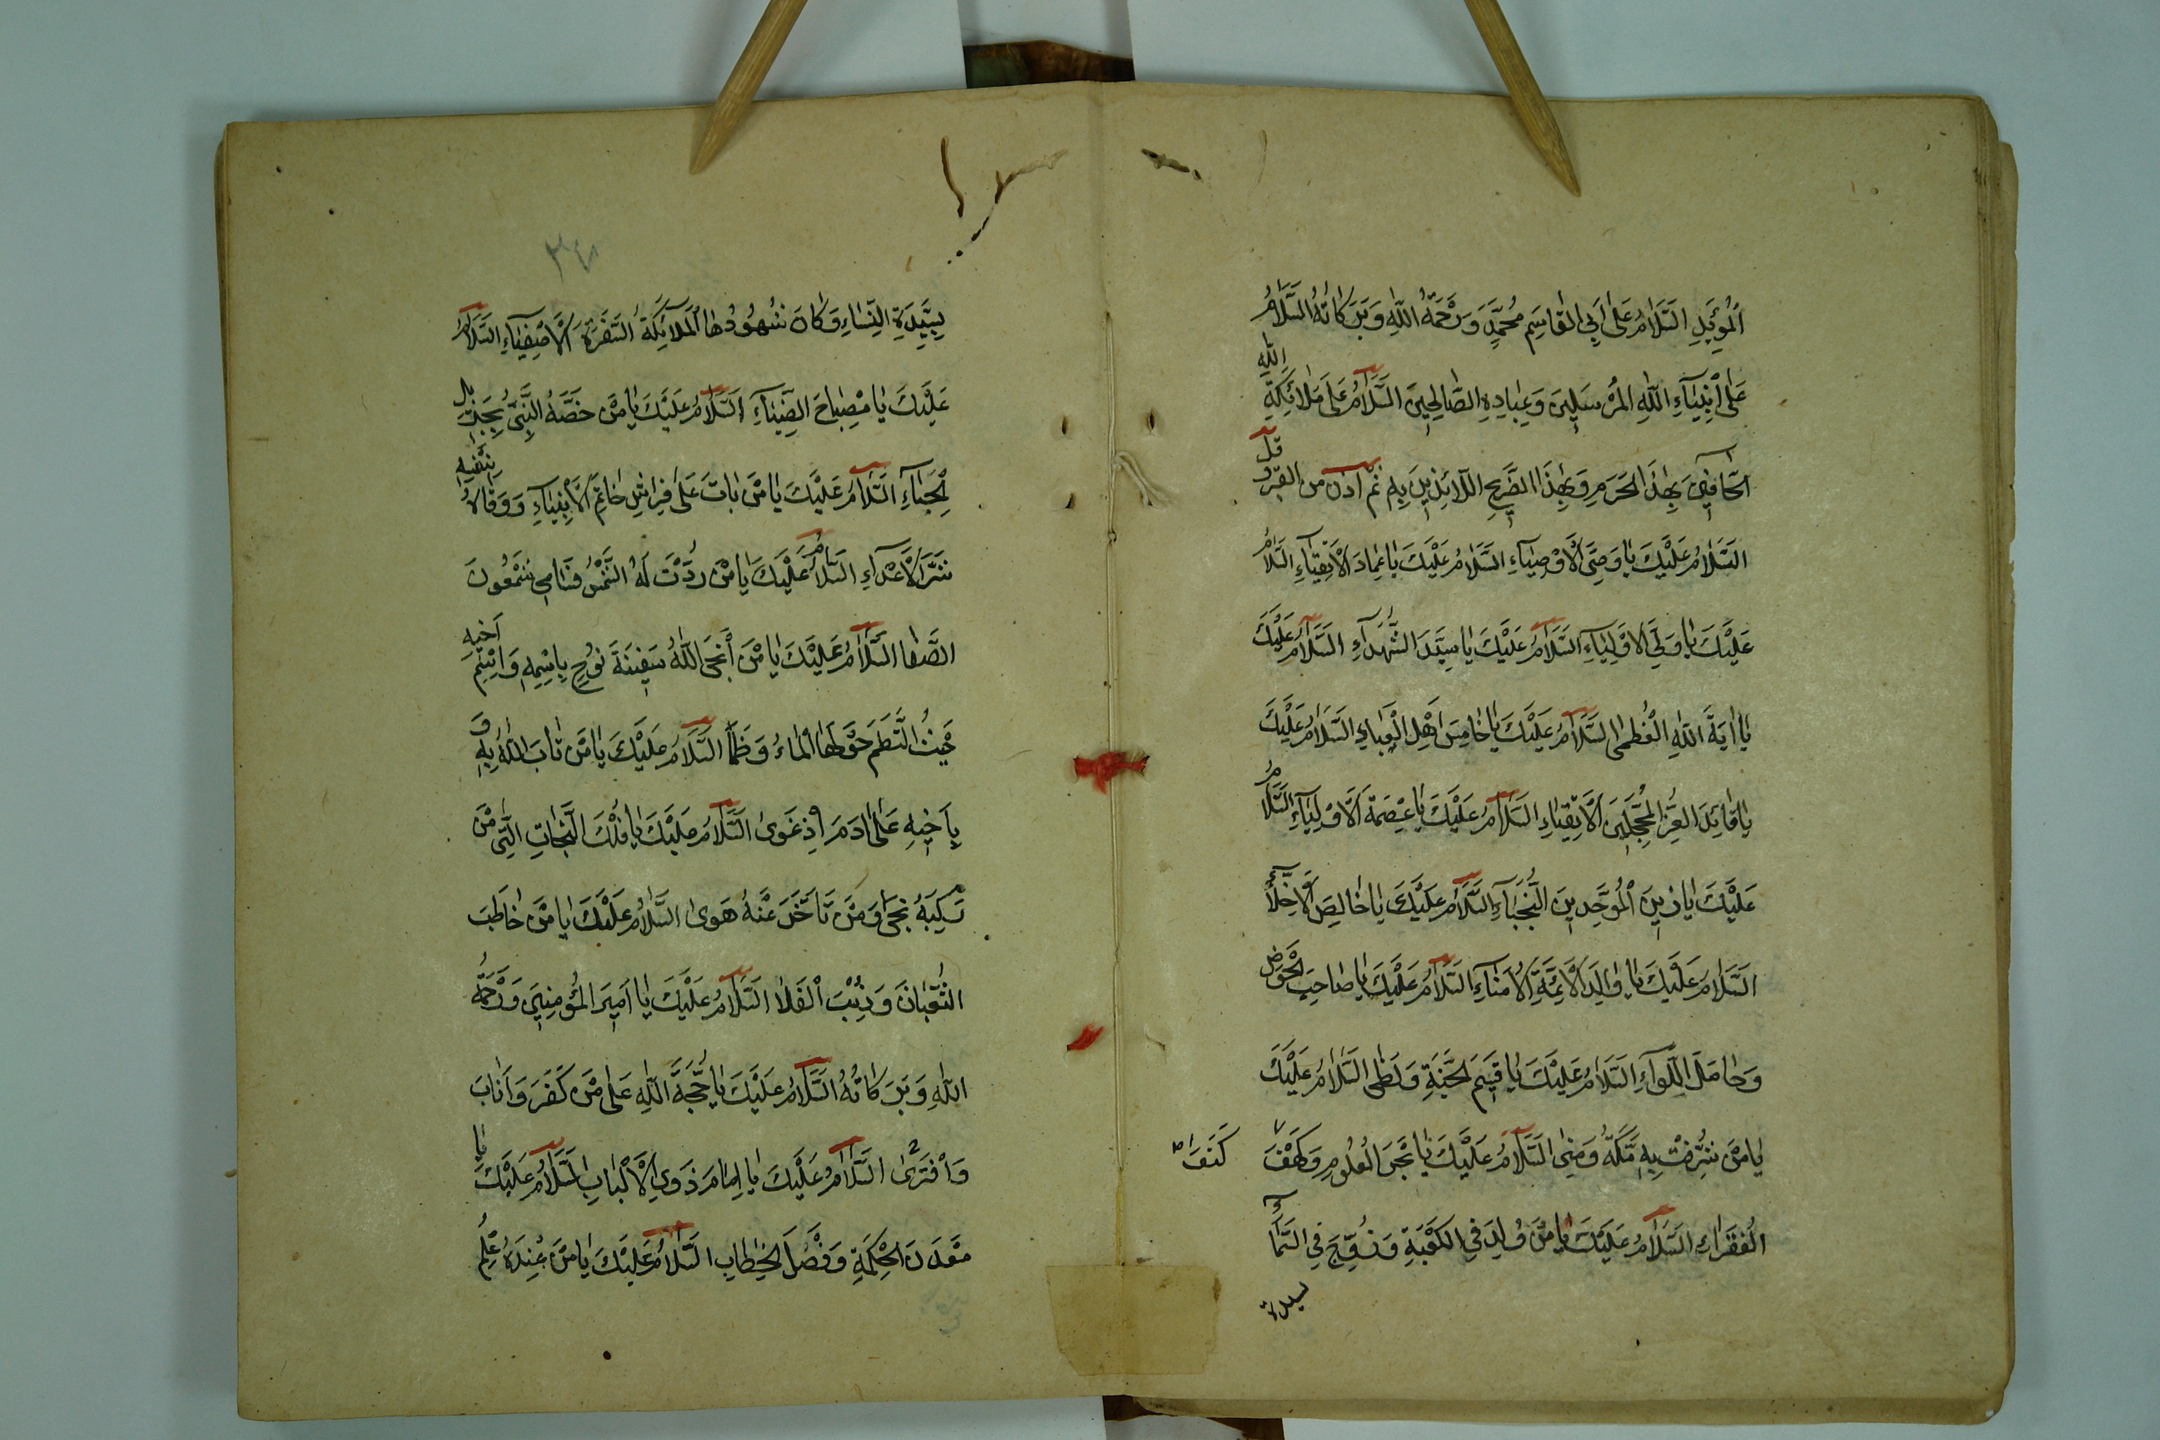 الْمُؤَيَّدِ السَّلَامُ عَلَى أَبِي الْقَاسِمِ مُحَمَّدٍ وَرَحْمَةُ اللهِ وَبَرَكَاتُهُ السَّلَامُ
عَلَى أَنْبِيَآءِ اللهِ الْمُرْسَلِينَ وَعِبَادِهِ الصَّالِحِينَ السَّلَامُ عَلَى مَلَائِكَةِ اللهِ
الْحَآفِّينَ بِهٰذَا الْحَرَمِ وَبِهٰذَا الضَّرِيحِ اللَّائِذِينَ بِهِ ثم ادن من القبر و قل
السَّلَامُ عَلَيْكَ يَا وَصِيَّ الْأَوْصِيَآءِ السَّلَامُ عَلَيْكَ يَا عِمَادَ الْأَتْقِيَآءِ السَّلَامُ
عَلَيْكَ يَا وَلِيَّ الْأَوْلِيَآءِ السَّلَامُ عَلَيْكَ يَا سَيِّدَ الشُّهَدَآءِ السَّلَامُ عَلَيْكَ
يَا اٰيَةَ اللهِ الْعُظْمٰى السَّلَامُ عَلَيْكَ يَا خَامِسَ أَهْلِ الْعَبَاءِ السَّلَامُ عَلَيْكَ
يَا قَائِدَ الْغُرِّ الْمُحَجَّلِينَ الْأَتْقِيَاءِ السَّلَامُ عَلَيْكَ يَا عِصْمَةَ الْأَوْلِيَآءِ السَّلَامُ
عَلَيْكَ يَا زَيْنَ الْمُوَحِّدِينَ النُّجَبَآءِ السَّلَامُ عَلَيْكَ يَا خَالِصَ الْأَخِلَّآءِ
السَّلَامُ عَلَيْكَ يَا وَالِدَ الْأَئِمَّةِ الْأُمَنَآءِ السَّلَامُ عَلَيْكَ يَا صَاحِبَ الْحَوْضِ
وَحَامِلَ اللِّوَآءِ السَّلَامُ عَلَيْكَ يَا قَسِيمَ الْجَنَّةِ وَلَظٰى السَّلَامُ عَلَيْكَ
يَا مَنْ شُرِّفَتْ بِهِ مَكَّةُ وَمِنٰى السَّلَامُ عَلَيْكَ يَا بَحْرَ الْعُلُومِ وَكَهْفَ
كَنَفَ
الْفُقَرَاءِ السَّلَامُ عَلَيْكَ يَا مَنْ وُلِدَ فِي الْكَعْبَةِ وَزُوِّجَ فِي السَّمَآءِ
بسيدة
٣٤٨
بِسَيِّدَةِ النِّسَاءِ وَكَانَ شُهُودُهَا الْمَلَآئِكَةَ السَّفَرَةَ الْأَصْفِيَآءِ السَّلَامُ
عَلَيْكَ يَا مِصْبَاحَ الضِّيَآءِ السَّلَامُ عَلَيْكَ يَا مَنْ خَصَّهُ النَّبِيُّ بِجَزِيلِ
الْحِبَآءِ السَّلَامُ عَلَيْكَ يَا مَنْ بَاتَ عَلَى فِرَاشِ خَاتَمِ الْأَنْبِيَآءِ وَوَقَاهُ بِنَفْسِهِ
شَرَّ الْأَعْدَآءِ السَّلَامُ عَلَيْكَ يَا مَنْ رُدَّتْ لَهُ الشَّمْسُ فَسَامٰى شَمْعُونَ
الصَّفَا السَّلَامُ عَلَيْكَ يَا مَنْ أَنْجَى اللهُ سَفِينَةَ نُوحٍ بِاسْمِهِ وَاسْمِ أَخِيهِ
حَيْثُ الْتَطَمَ حَوْلَهَا الْمَاءُ وَطَمٰا السَّلَامُ عَلَيْكَ يَا مَنْ تَابَ اللهُ بِهِ وَ
بِأَخِيهِ عَلَى اٰدَمَ إِذْ غَوٰى السَّلَامُ عَلَيْكَ يَا فُلْكَ النَّجَاتِ الَّتِي مَنْ
رَكِبَهُ نَجٰى وَمَنْ تَأَخَّرَ عَنْهُ هَوٰى السَّلَامُ عَلَيْكَ يَا مَنْ خَاطَبَ
الثُّعْبَانَ وَذِئْبَ الْفَلَا السَّلَامُ عَلَيْكَ يَا أَمِيرَ الْمُؤْمِنِينَ وَرَحْمَةُ
اللهِ وَبَرَكَاتُهُ السَّلَامُ عَلَيْكَ يَا حُجَّةَ اللهِ عَلَى مَنْ كَفَرَ وَأَنَابَ
وَافْتَرٰى السَّلَامُ عَلَيْكَ يَا إِمَامَ ذَوِي الْأَلْبَابِ السَّلَامُ عَلَيْكَ يَا
مَعْدِنَ الْحِكْمَةِ وَفَصْلَ الْخِطَابِ السَّلَامُ عَلَيْكَ يَا مَنْ عِنْدَهُ عِلْمُ